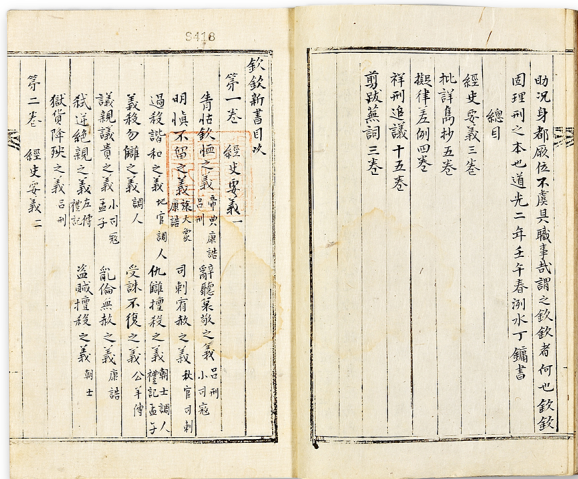 9418
助況身都厥位不虞具職事哉謂之欽欽者何也欽欽
固理刑之本也道光二年壬午春洌水丁鏞書
總目
經史要義三卷
批詳雋抄五卷
擬律差例四卷
祥刑追議十五卷
剪跋蕪詞三卷
欽欽新書目次
第一卷 經史要義一
眚怙欽恤之義 帝典康誥呂刑 辭聽哀敬之義 呂刑小司寇
明愼不留之義 旅大象康誥 司刺宥赦之義 秋官司刺
過殺諧和之義 地官調人 仇讎擅殺之義 朝士調人禮記孟子
義殺勿讎之義 調人 受誅不復之義 公羊傳
議親議貴之義 小司寇孟子 亂倫無赦之義 康誥
弑逆絶親之義 左傳禮記 盜賊擅殺之義 朝士
獄貨降殃之義 呂刑
第二卷 經史要義二